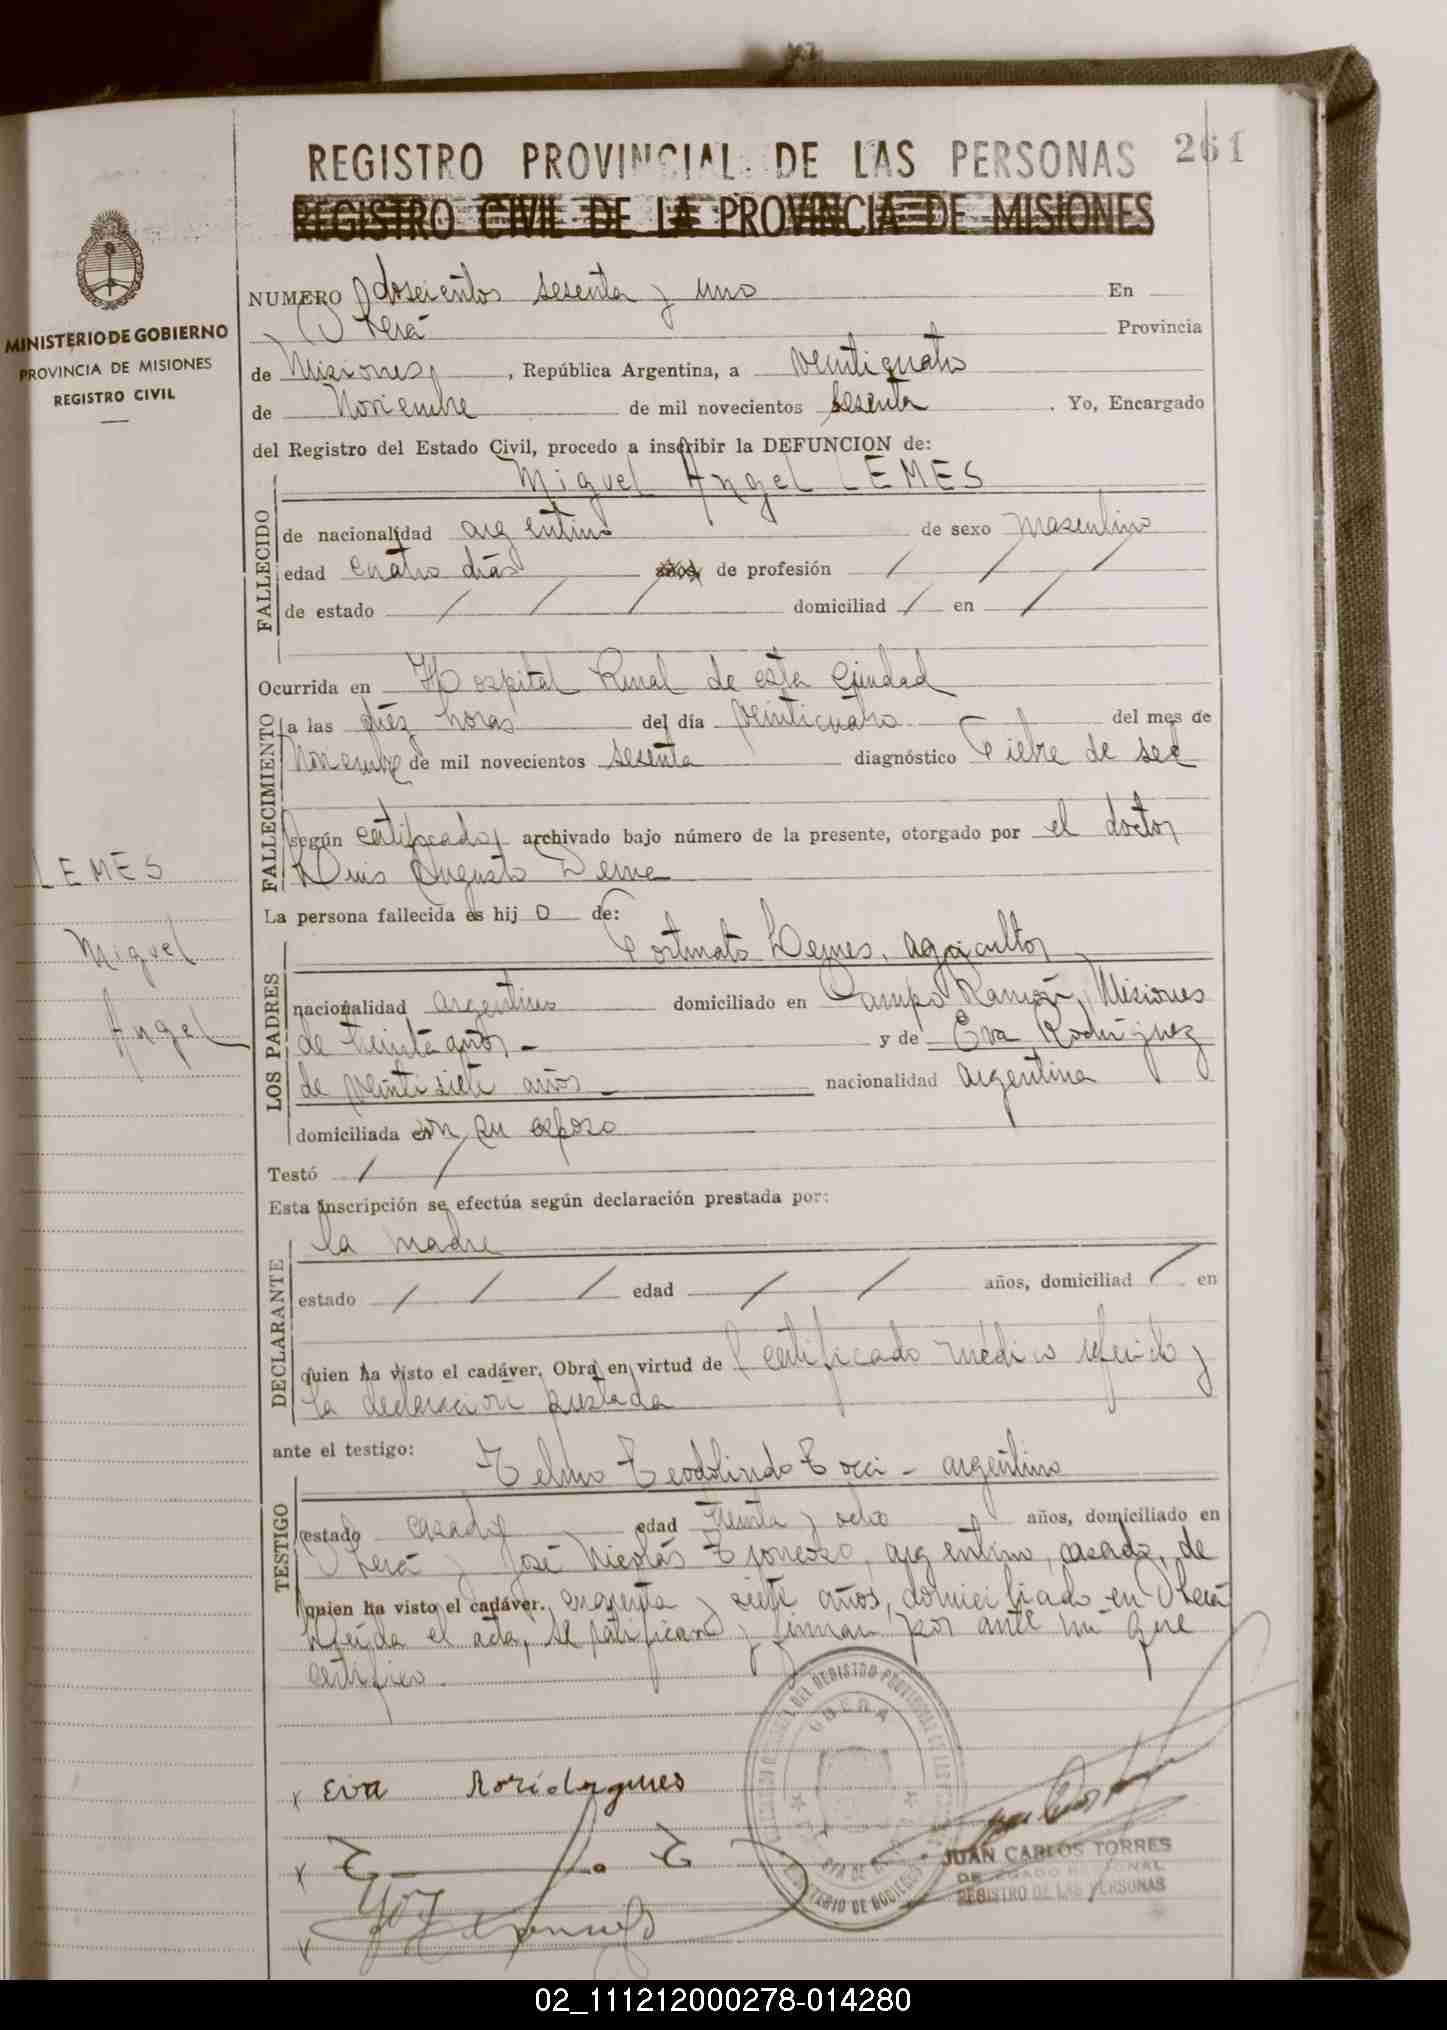 REGISTRO PROVINCIAL DE LAS PERSONAS 261
REGISTRO CIVIL DE LA PROVINCIA DE MISIONES
MINISTERIO DE GOBIERNO
PROVINCIA DE MISIONES
REGISTRO CIVIL
NUMERO doscientos sesenta y uno En
Oberá Provincia
de Misiones, República Argentina, a veinticuatro
de Noviembre de mil novecientos sesenta. Yo, Encargado
del Registro del Estado Civil, procedo a inscribir la DEFUNCION de:
Miguel Angel LEMES
FALLECIDO
de nacionalidad argentino de sexo masculino
edad cuatro días años de profesión / / /
de estado / / / domiciliad / en /
Ocurrida en Hospital Rural de esta ciudad
FALLECIMIENTO
a las diéz horas del día veinticuatro del mes de
Noviembre de mil novecientos sesenta diagnóstico Fiebre de sed
según certificado, archivado bajo número de la presente, otorgado por el doctor
Luis Augusto Derna
La persona fallecida es hij o de:
LEMES
Miguel
Angel
LOS PADRES
Fortunato Lemes, agricultor
nacionalidad argentino domiciliado en Campo Ramón, Misiones
de treinta años - y de Eva Rodríguez
de veintisiete años - nacionalidad argentina
domiciliada en con su esposo
Testó / /
Esta inscripción se efectúa según declaración prestada por:
DECLARANTE
la madre
estado / / / edad / / años, domiciliad / en
quien ha visto el cadáver. Obra en virtud de l certificado médico referido y
la declaración prestada
ante el testigo:
TESTIGO
Telmo Teodolindo Tocci - argentino
estado casado edad treinta y ocho años, domiciliado en
Oberá y José Nicolás Troncozo, argentino, casado, de
quien ha visto el cadáver. cuarenta y siete años, domiciliado en Oberá
leída el acta, se ratifican y firman por ante mi que
certifico.
x Eva Roridugues
JUAN CARLOS TORRES
DELEGADO REGIONAL
REGISTRO DE LAS PERSONAS
OBERA
02_111212000278-014280